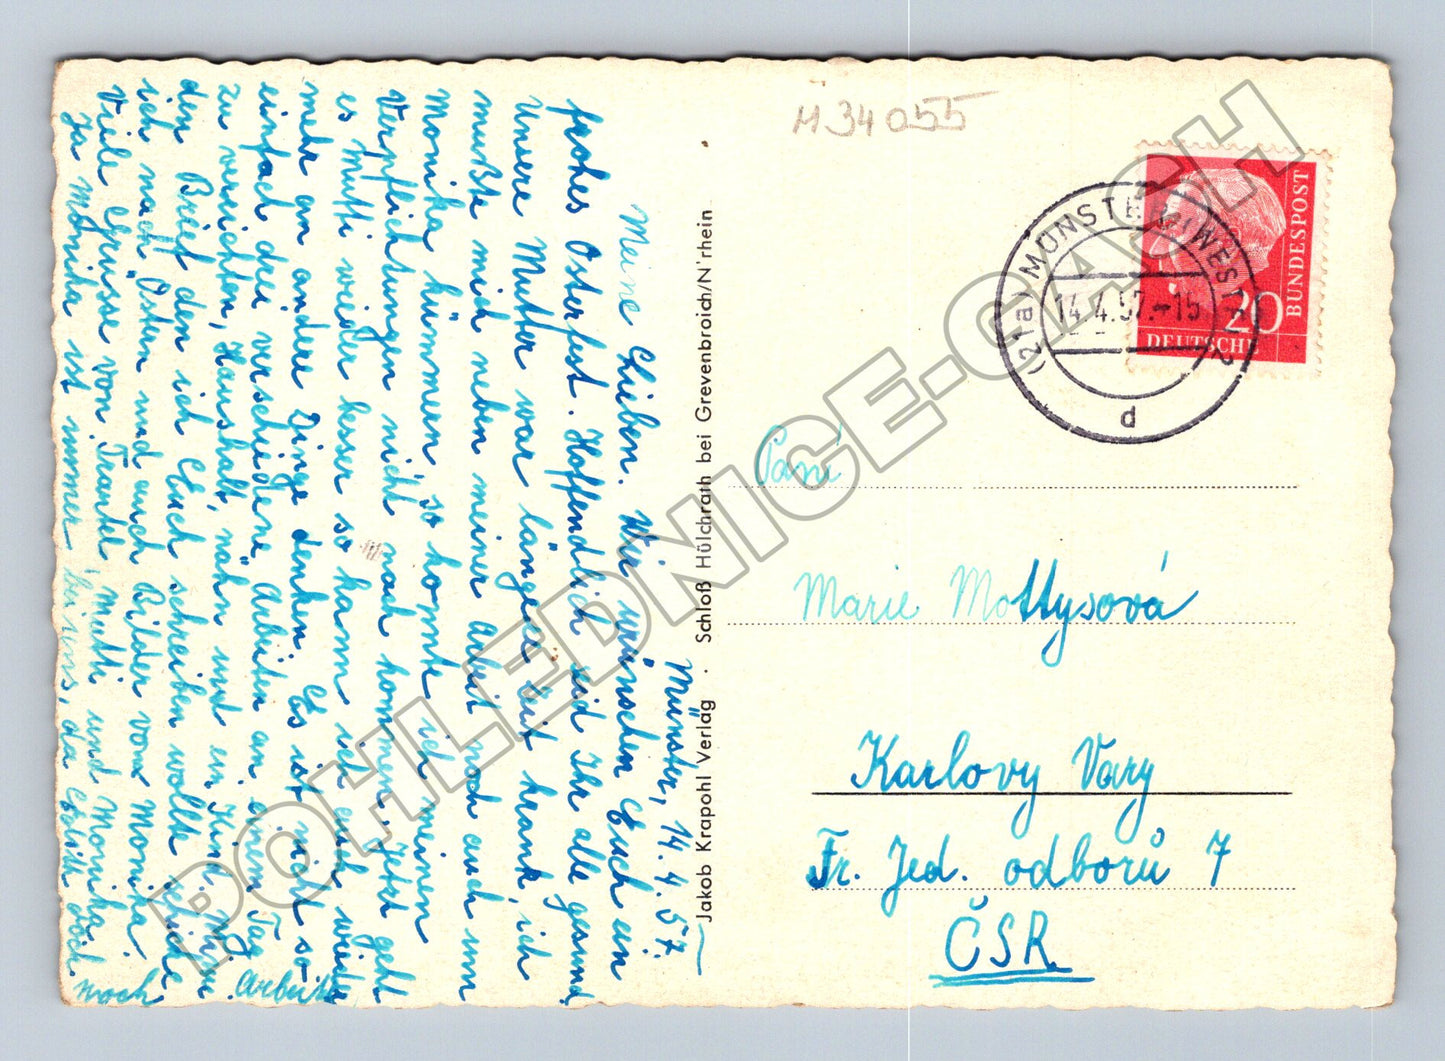 Münster, 14.4.57.
Meine Lieben. Wir wünschen Euch ein
frohes Osterfest. Hoffendlich seid Ihr alle gesund.
Unsere Mutter war längere Zeit krank, ich
mußte mich neben meiner Arbeit noch auch um
Monika kümmern, so konnte ich meinen
Verpflichtungen nicht nach kommen. Jetzt geht
es Mutti wieder besser so kann ich auch wieder
mehr an andere Dinge denken. Es ist nicht so
einfach drei verschiedene Arbeiten an einem Tag
zu verrichten, Haushalt, nähn und ein Kind.
den Brief den ich Euch schreiben wollte schicke
ich nach Ostern und auch Bilder von Monika.
Viele Grüsse von Traute, Mutti und Monika.
Ja Monika ist immer bei uns, da doch
noch Arbeit
Jakob Krapohl Verlag · Schloß Hülchrath bei Grevenbroich/N'rhein
M 34055
(21a) MÜNSTER (WESTF) 2
14.4.57.-15
d
DEUTSCHE
BUNDESPOST
20
Paní
Marie Mottysová
Karlovy Vary
Fr. Jed. odborů 7
ČSR
POHLEDNICE-GASH